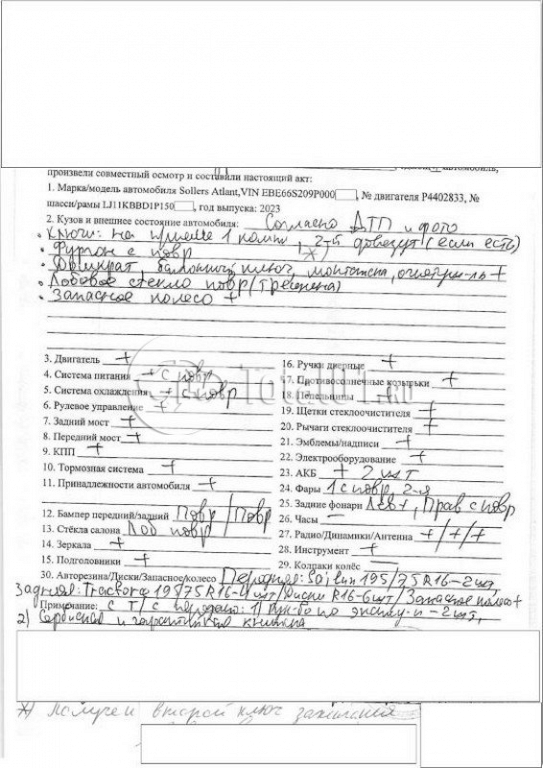 произвели совместный осмотр и составили настоящий акт:
1. Марка/модель автомобиля Sollers Atlant,VIN EBE66S209P000 , № двигателя P4402833, №
шасси/рамы LJ11KBBD1P150 , год выпуска: 2023
2. Кузов и внешнее состояние автомобиля: Согласно ДТП и фото
• Ключи: на приеме 1 компл, 2-й довезут (если есть)
• Фургон с повр *)
• Домкрат, балонный ключ, монтажка, огнетуш-ль +
• Лобовое стекло повр (трещина)
• Запасное колесо +
3. Двигатель +
4. Система питания + с повр
5. Система охлаждения + с повр
6. Рулевое управление +
7. Задний мост +
8. Передний мост +
9. КПП +
10. Тормозная система +
11. Принадлежности автомобиля +
12. Бампер передний/задний Повр / Повр
13. Стёкла салона Лоб повр
14. Зеркала +
15. Подголовники +
16. Ручки дверные +
17. Противосолнечные козырьки +
18. Пепельницы +
19. Щетки стеклоочистителя +
20. Рычаги стеклоочистителя +
21. Эмблемы/надписи +
22. Электрооборудование +
23. АКБ + 2 шт
24. Фары 1 с повр, 2-я
25. Задние фонари Лев +, Прав с повр
26. Часы —
27. Радио/Динамики/Антенна +/+/+
28. Инструмент +
29. Колпаки колёс —
30. Авторезина/Диски/Запасное/колесо Передняя: 195/75 R16-2шт,
Задняя: 195/75 R16-4шт/Диски R16-6шт/Запасное колесо+
Примечание: с Т/С передано: 1) по эксплу-и - 2шт,
2) Сервисная и гарантийная книжка
*) Получен второй ключ зажигания